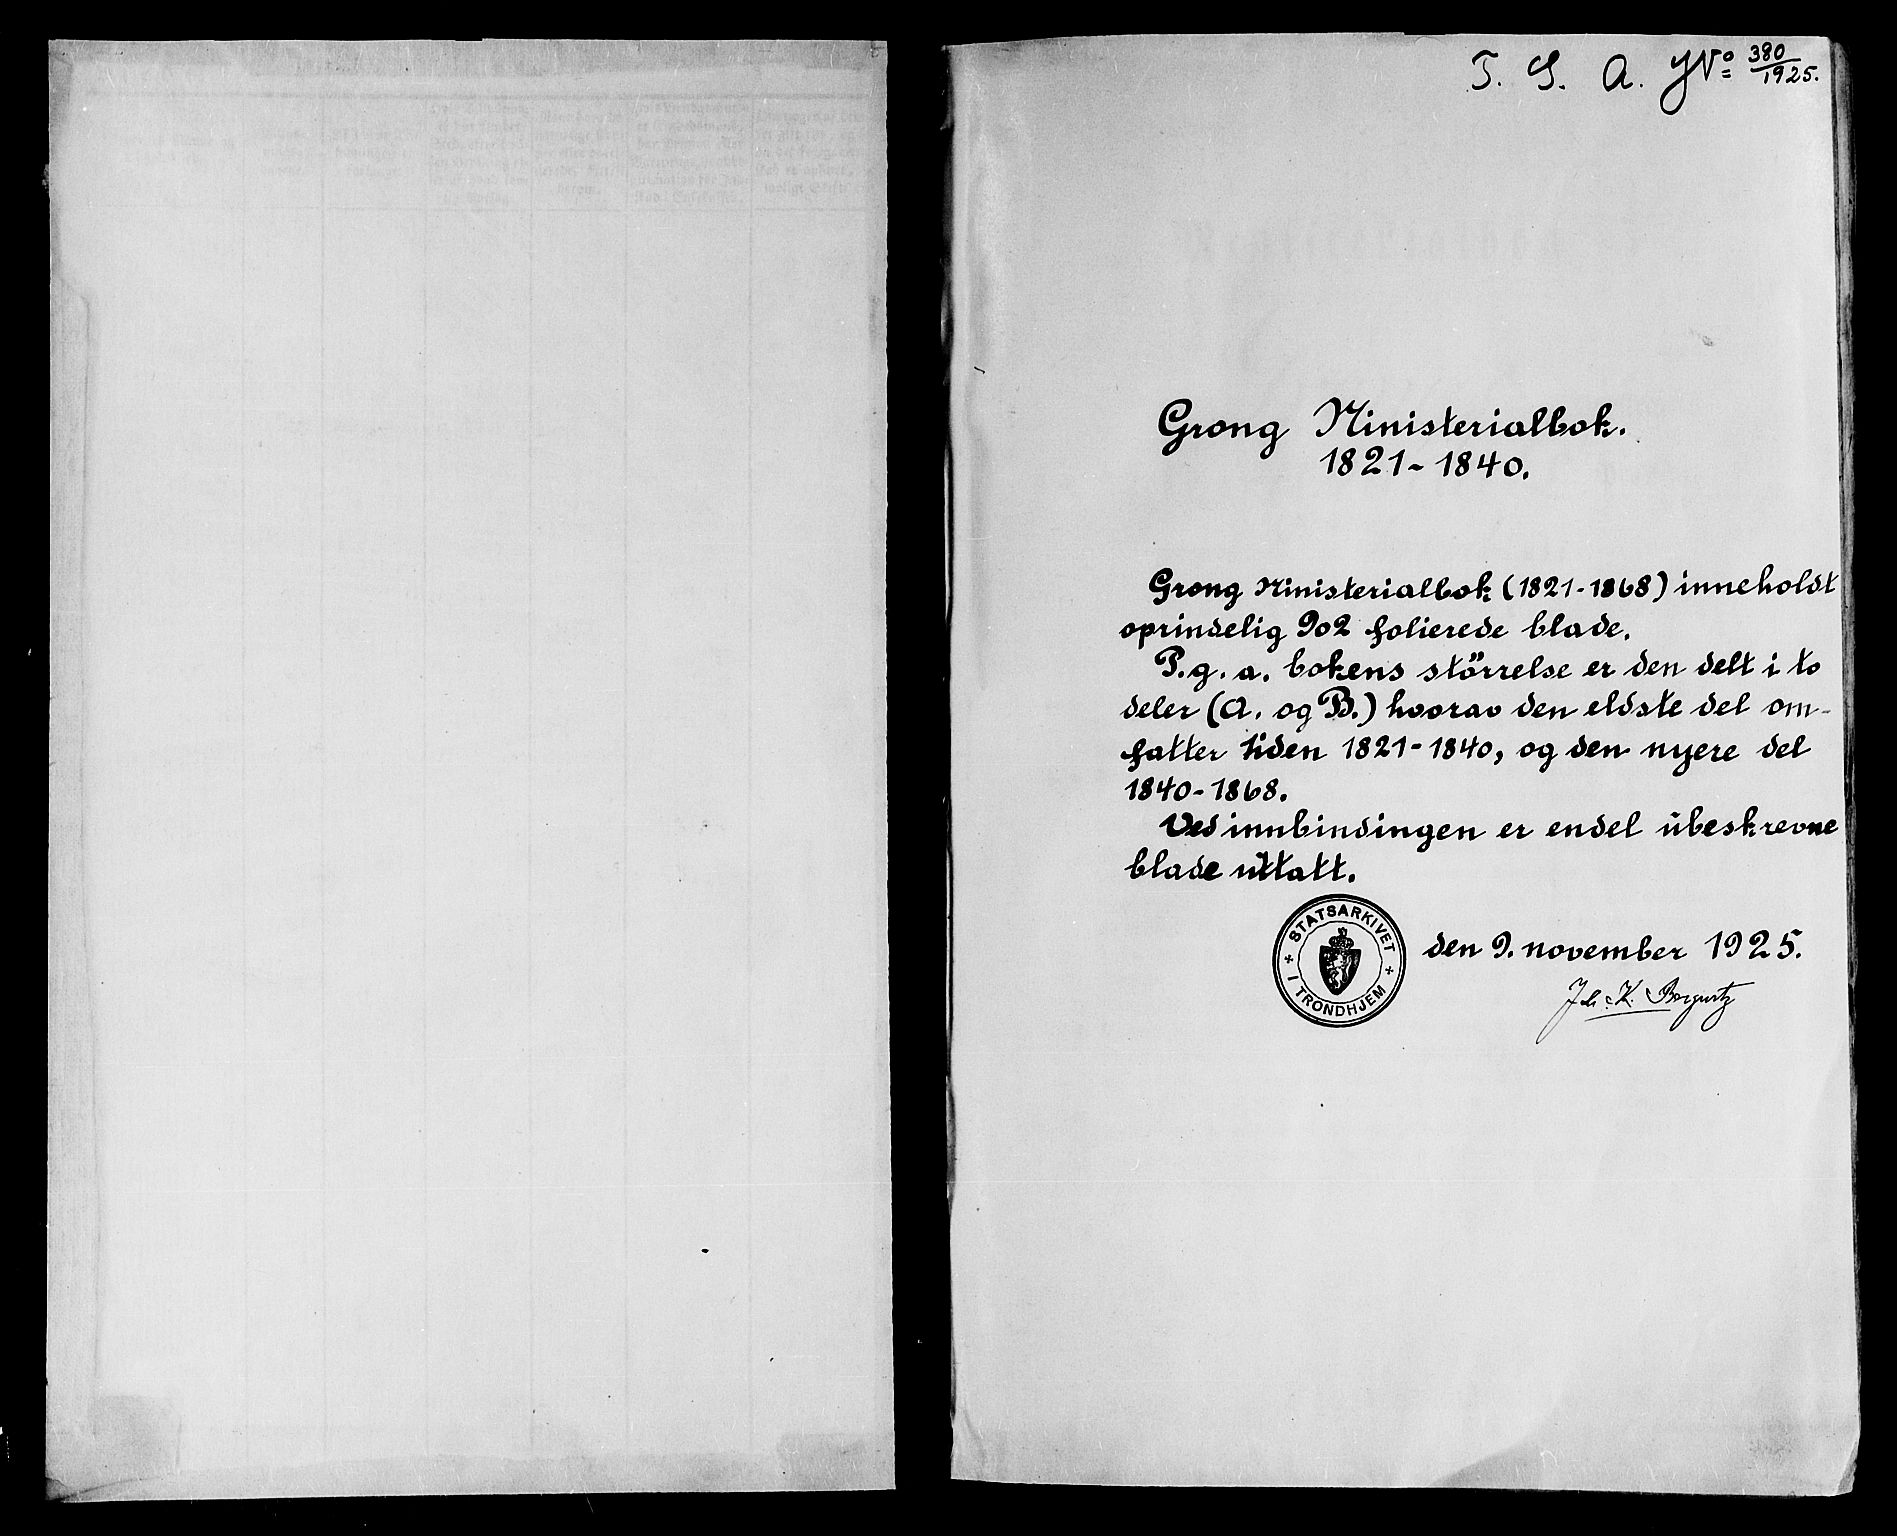 T. S. A. JNo 380/1925.
Grong Ministerialbok.
1821-1840.
Grong Ministerialbok (1821-1868) inneholdt
oprindelig 902 folierede blade.
P.g.a. bokens störrelse er den delt i to
deler (A. og B.) hvorav den eldste del om-
fatter tiden 1821-1840, og den nyere del
1840-1868.
Ved innbindingen er endel ubeskrevne
blade uttatt.
STATSARKIVET
I TRONDHJEM
den 9. november 1925.
K.